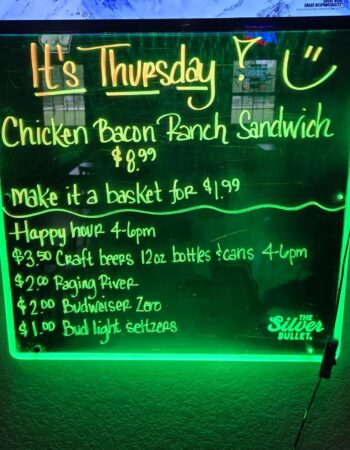 It's Thursday!
Chicken Bacon Ranch Sandwich
$8.99
Make it a basket for $1.99
Happy hour 4-6pm
$3.50 Craft beers 12oz bottles & cans 4-6pm
$2.00 Raging River
$2.00 Budweiser Zero
$1.00 Bud light seltzers
THE
Silver
BULLET.